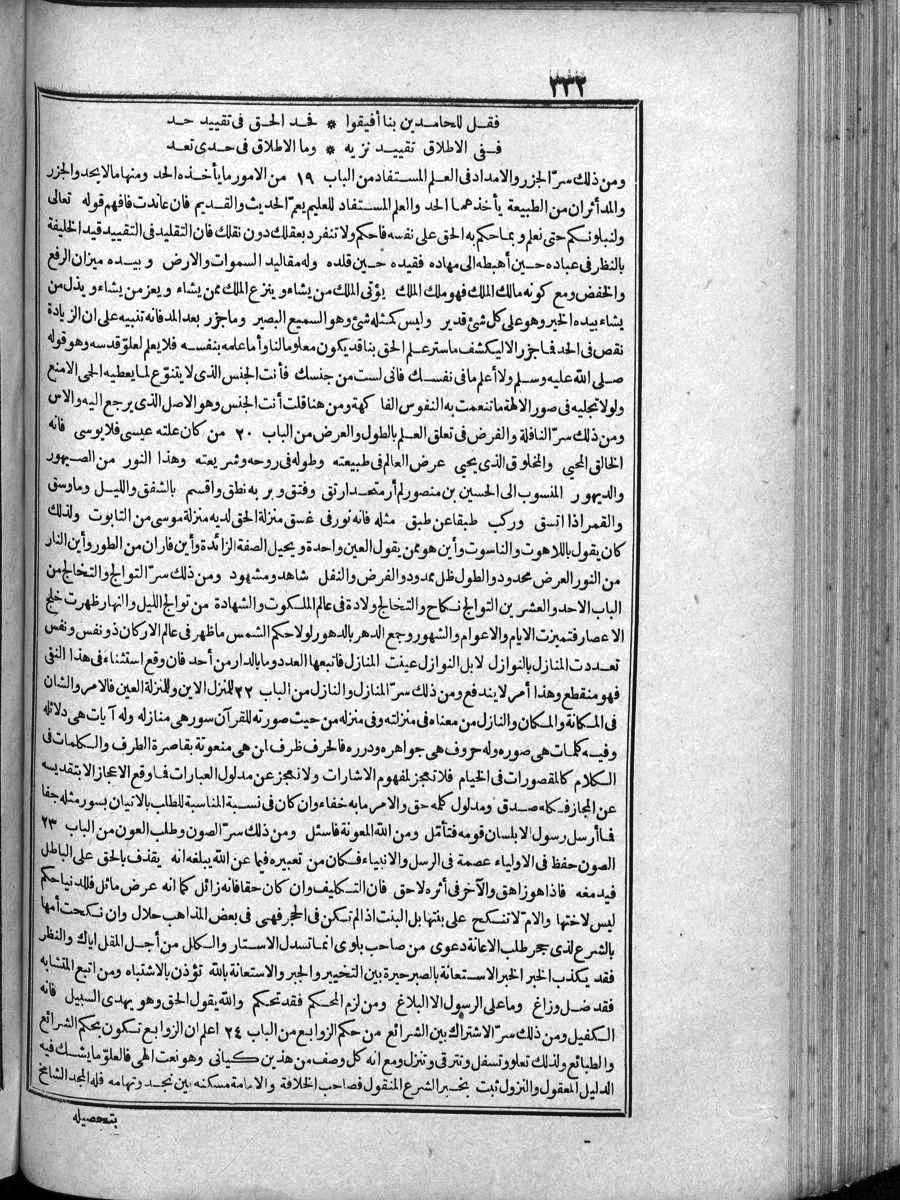 ٣٣٢
فقل للحامدين بنا أفيقوا * فحمد الحق فى تقييد حمد
ففى الاطلاق تقييد نزيه * وما الاطلاق فى حدى تعد
ومن ذلك سرّ الجزر والامداد فى العلم المستفاد من الباب ١٩ من الامور ما يأخذه الحد ومنها ما لا يحد والجزر
والمد أثران من الطبيعة يأخذهما الحد والعلم المستفاد للعليم يعمّ الحديث والقديم فان عاندت فافهم قوله تعالى
ولنبلونكم حتى نعلم وبما حكم به الحق على نفسه فاحكم ولا تنفرد بعقلك دون نقلك فان التقليد فى التقييد قيد الخليفة
بالنظر فى عباده حين أهبطه الى مهاده فقيده حين قلده وله مقاليد السموات والارض وبيده ميزان الرفع
والخفض ومع كونه مالك الملك فهو ملك الملك يؤتى الملك من يشاء وينزع الملك ممن يشاء ويعز من يشاء ويذل من
يشاء بيده الخير وهو على كل شئ قدير وليس كمثله شئ وهو السميع البصير وما جزر بعد المد فانه تنبيه على ان الزيادة
نقص فى الحد فما جزر الا ليكشف ما ستر علم الحق بنا قد يكون معلوما لنا وأما علمه بنفسه فلا يعلم لعلوّ قدسه وهو قوله
صلى الله عليه وسلم ولا أعلم ما فى نفسك فانى لست من جنسك فأنت الجنس الذى لا يتنوّع لما يعطيه الحمى الامنع
ولولا تجليه فى صور الالهة ما تنعمت به النفوس الفاكهة ومن هنا قلت أنت الجنس وهو الاصل الذى يرجع اليه والاس
ومن ذلك سرّ النافلة والفرض فى تعلق العلم بالطول والعرض من الباب ٢٠ من كان علته عيسى فلا يوسى فانه
الخالق المحيى والمخلوق الذى يحيى عرض العالم فى طبيعته وطوله فى روحه وشريعته وهذا النور من الصيهور
والديهور المنسوب الى الحسين بن منصور لم أر متحدا رتق وفتق وبر به نطق واقسم بالشفق والليل وما وسق
والقمر اذا اتسق وركب طبقا عن طبق مثله فانه نور فى غسق منزلة الحق لديه منزلة موسى من التابوت ولذلك
كان يقول باللاهوت والناسوت وأين هو ممن يقول العين واحدة ويحيل الصفة الزائدة وأين فاران من الطور وأين النار
من النور العرض محدود والطول ظل ممدود والفرض والنفل شاهد ومشهود ومن ذلك سرّ التوالج والتخالج من
الباب الاحد والعشرين التوالج نكاح والتخالج ولادة فى عالم الملكوت والشهادة من توالج الليل والنهار ظهرت خلج
الاعصار فتميزت الايام والاعوام والشهور وجمع الدهر بالدهور لولا حكم الشمس ما ظهر فى عالم الاركان ذو نفس ونفس
تعددت المنازل بالنوازل لا بل النوازل عينت المنازل فاتبعها العدد وما بالدار من أحد فان وقع استثناء فى هذا النفى
فهو منقطع وهذا أمر لا يندفع ومن ذلك سرّ المنازل والنازل من الباب ٢٢ للمنزل الاين وللمنزلة العين فالامر والشان
فى المكانة والمكان والنازل من معناه فى منزلته وفى منزله من حيث صورته للقرآن سور هى منازله وله آيات هى دلائله
وفيه كلمات هى صوره وله حروف هى جواهره ودرره فالحرف ظرف لمن هى منعوتة بقاصرة الطرف والكلمات فى
الكلام كالمقصورات فى الخيام فلا تعجز لمفهوم الاشارات ولا تعجز عن مدلول العبارات فما وقع الاعجاز الا بتقديسه
عن المجاز فكله صدق ومدلول كلمه حق والامر ما به خفاء وان كان فى نسبة المناسبة للطلب بالاتيان بسور مثله جفا
فما أرسل رسول الا بلسان قومه فتأمّل ومن الله المعونة فاسئل ومن ذلك سرّ الصون وطلب العون من الباب ٢٣
الصون حفظ فى الاولياء عصمة فى الرسل والانبياء فكان من تعبيره فيما عن الله يبلغه انه يقذف بالحق على الباطل
فيدمغه فاذا هو زاهق والآخر فى أثره لاحق فان التكليف وان كان حقا فانه زائل كما انه عرض مائل فللدنيا حكم
ليس لاختها والامّ لا تنكح على بنتها بل البنت اذا لم تكن فى الحجر فهى فى بعض المذاهب حلال وان نكحت أمها
بالشرع لذى حجر طلب الاعانة دعوى من صاحب بلوى انما تسدل الاستار والكلل من أجل المقل اياك والنظر
فقد يكذب الخبر الخبر الاستعانة بالصبر حيرة بين التخيير والجبر والاستعانة بالله تؤذن بالاشتباه ومن اتبع المتشابه
فقد ضل وزاغ وما على الرسول الا البلاغ ومن لزم المحكم فقد تحكم والله يقول الحق وهو يهدى السبيل فانه
الكفيل ومن ذلك سرّ الاشتراك بين الشرائع من حكم الزوابع من الباب ٢٤ اعلم ان الزوابع تكون بحكم الشرائع
والطبائع ولذلك تعلو وتسفل وتترقى وتنزل ومع انه كل وصف من هذين كيانى وهو نعت الهى فالعلوّ ما يشك فيه
الدليل المعقول والنزول ثبت بخبر الشرع المنقول فصاحب الخلافة والامامة مسكنه بين نجد وتهامه فله المجد الشامخ
بتحصيله